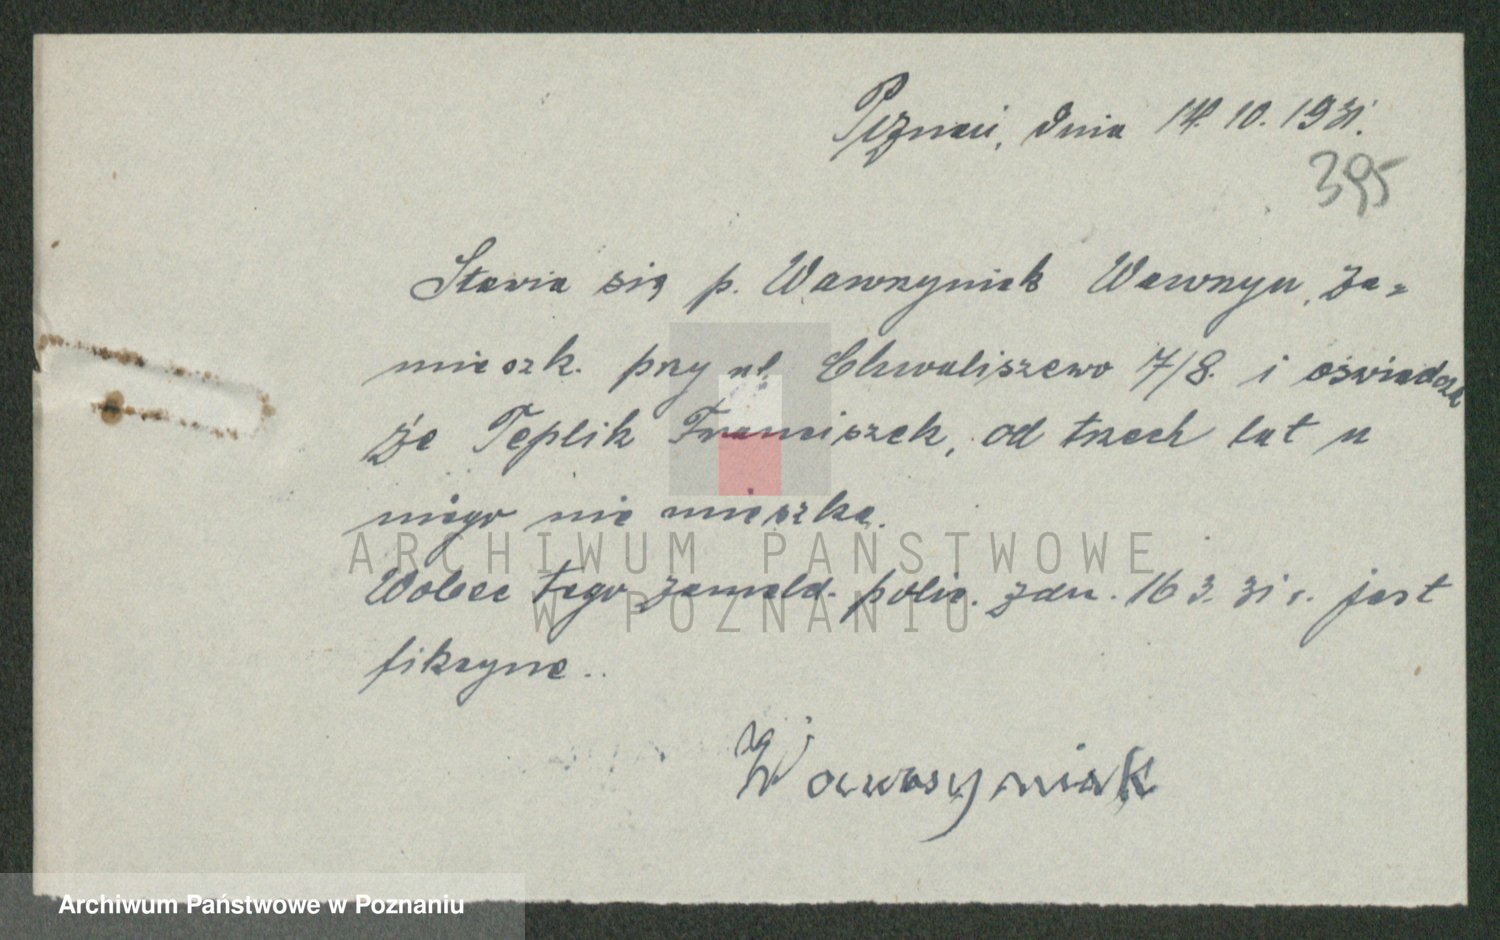 Poznań, dnia 14. 10. 1931.
395
Stawia się p. Wawrzyniak Wawrzyn, za-
mieszk. przy ul. Chwaliszewo 7/8. i oświadcza
że Teplik Franciszek, od trzech lat u
niego nie mieszka.
Wobec tego zameld. polic. z dn. 16 3. 31 r. jest
fikcyjne..
Wawrzyniak
ARCHIWUM PAŃSTWOWE
W POZNANIU
Archiwum Państwowe w Poznaniu